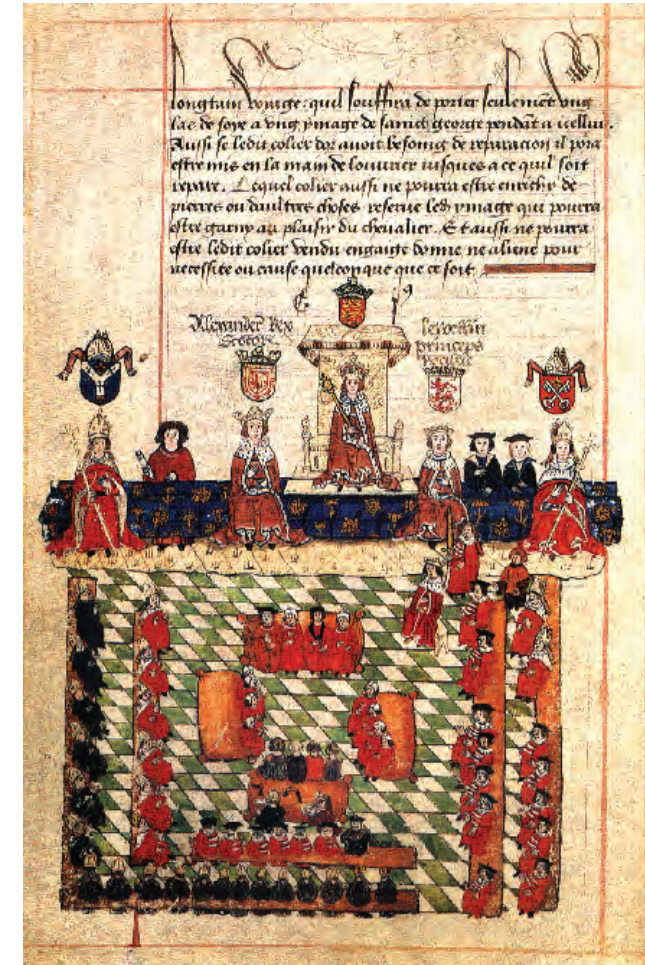 longtain voyage: quil souffira de porter seulement ung
lac de soye a ung ymage de sainct george pendat a icellui.
Aussi se ledit colier dor avoit besoing de reparacion il pora
estre mis en la main de louvrier iusques a ce quil soit
repare. Lequel colier aussi ne pourra estre enrichy de
pierres ou daultres choses reserve led ymage qui pourra
estre garny au plaisir du chevalier. Et aussi ne pourra
estre ledit colier vendu engaige donne ne aliene pour
necessite ou cause quelconque que ce soit.
Alexander Rex
princeps